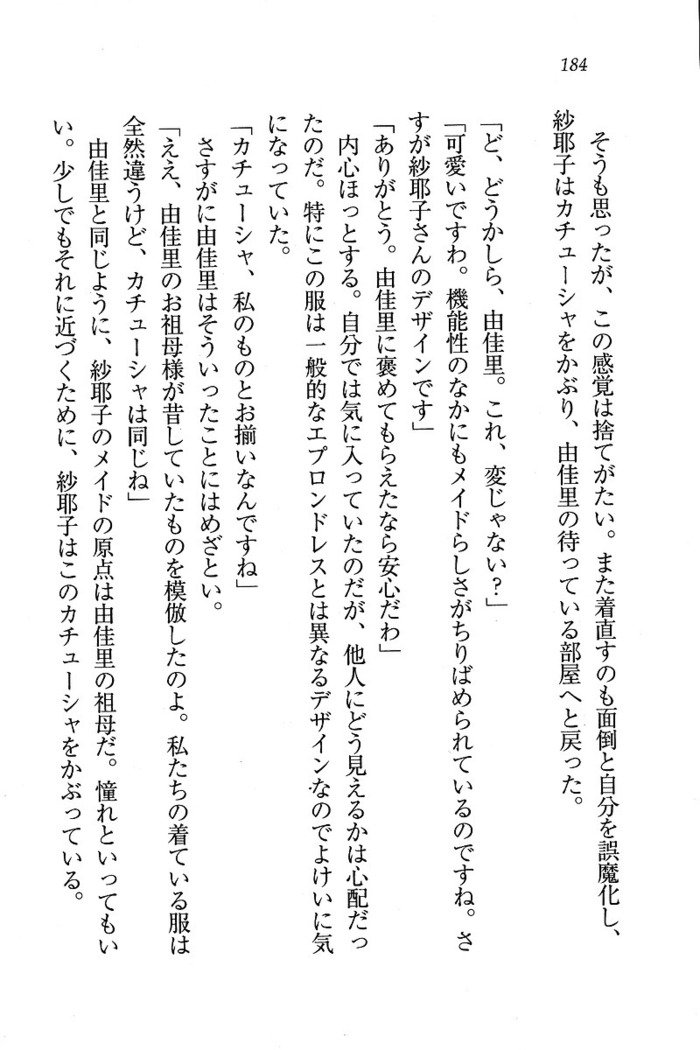 184
そうも思ったが、この感覚は捨てがたい。また着直すのも面倒と自分を誤魔化し、
紗耶子はカチューシャをかぶり、由佳里の待っている部屋へと戻った。
「ど、どうかしら、由佳里。これ、変じゃない？」
「可愛いですわ。機能性のなかにもメイドらしさがちりばめられているのですね。さ
すが紗耶子さんのデザインです」
「ありがとう。由佳里に褒めてもらえたなら安心だわ」
内心ほっとする。自分では気に入っていたのだが、他人にどう見えるかは心配だっ
たのだ。特にこの服は一般的なエプロンドレスとは異なるデザインなのでよけいに気
になっていた。
「カチューシャ、私のものとお揃いなんですね」
さすがに由佳里はそういったことにはめざとい。
「ええ、由佳里のお祖母様が昔していたものを模倣したのよ。私たちの着ている服は
全然違うけど、カチューシャは同じね」
由佳里と同じように、紗耶子のメイドの原点は由佳里の祖母だ。憧れといってもい
い。少しでもそれに近づくために、紗耶子はこのカチューシャをかぶっている。